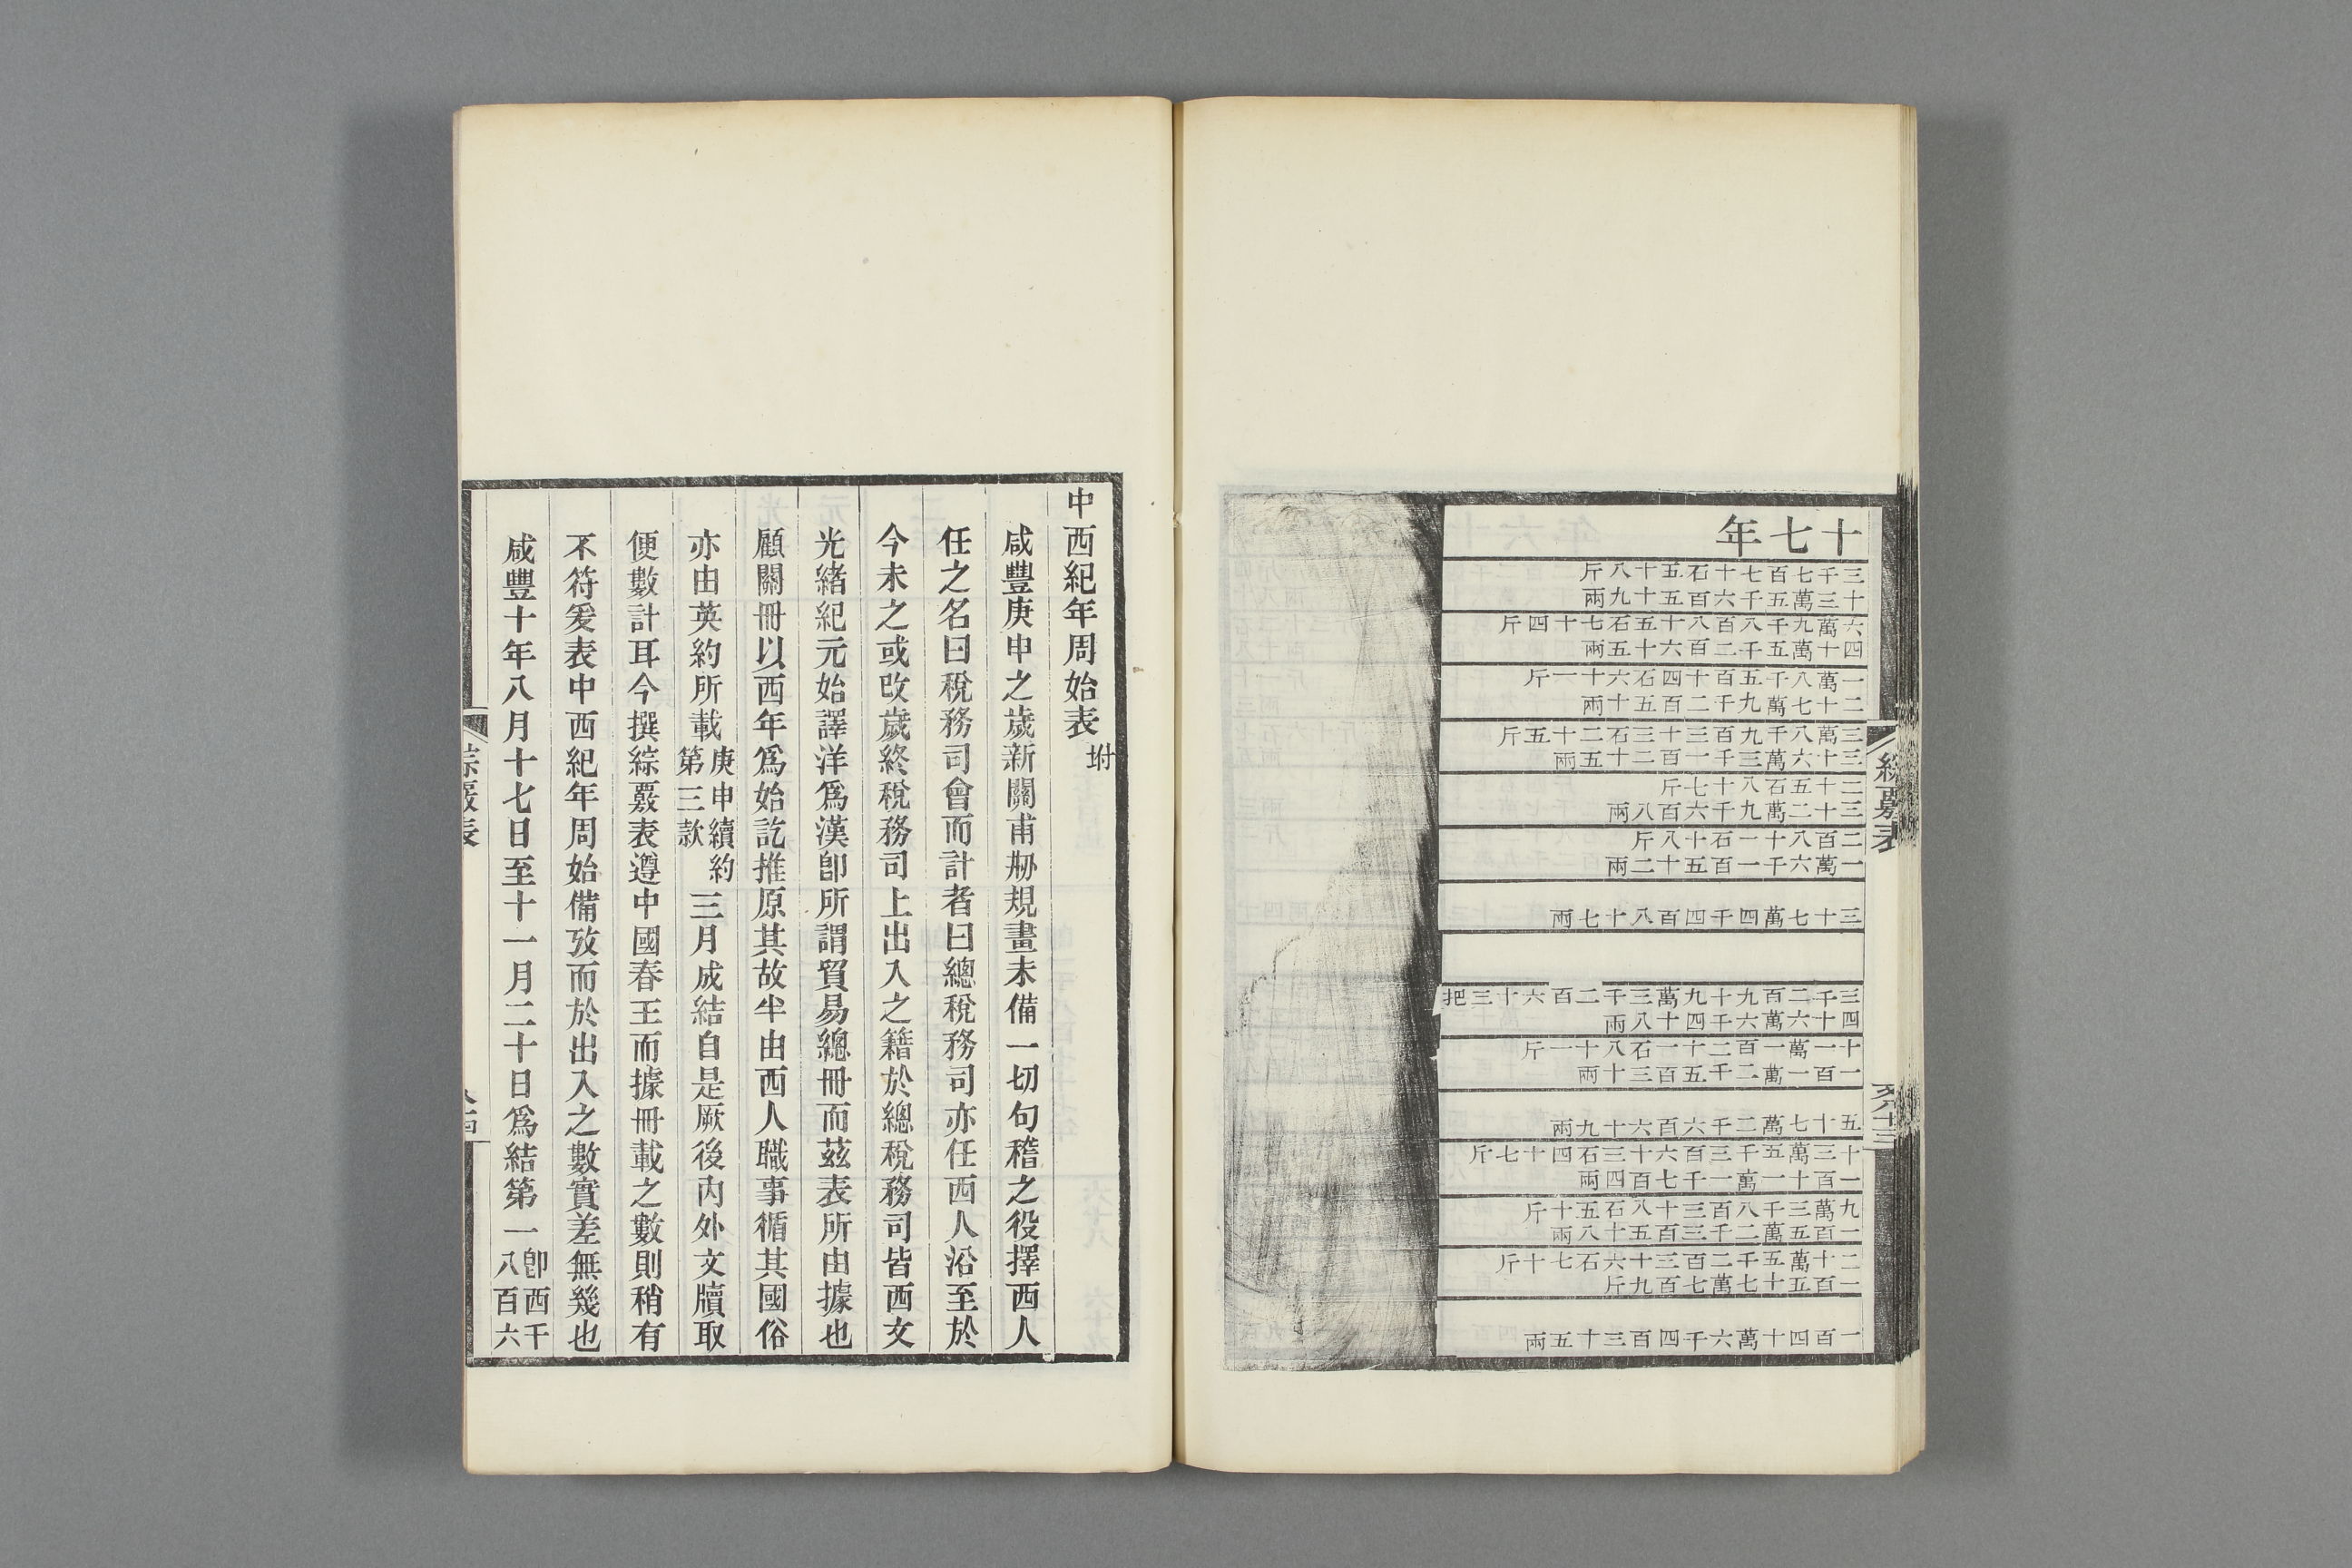 綜覈表
十七年
三千七百七十石五十八斤
十三萬五千六百五十九兩
六萬九千八百八十五石七十四斤
四十萬五千二百六十五兩
一萬八千五百十四石六十一斤
二十七萬九千二百五十兩
三萬八千九百三十三石二十五斤
三十六萬三千一百二十五兩
二十五石八十七斤
三十二萬九千六百八兩
二百八十一石十八斤
一萬六千一百五十二兩
三十七萬四千四百八十七兩
三千二百九十九萬三千二百六十三把
四十六萬六千四十八兩
十一萬一百二十一石八十一斤
一百一萬二千五百三十兩
五十七萬二千六百六十九兩
十三萬五千三百六十三石四十七斤
一百十一萬一千七百四兩
九萬三千八百三十八石五十斤
一百五萬二千三百五十八兩
二十萬五千二百三十六石七十斤
一百五十七萬七百九斤
一百四十萬六千四百三十五兩
中西紀年周始表坿
咸豐庚申之歲新關甫刱規畫未備一切句稽之役擇西人
任之名曰稅務司會而計者曰總稅務司亦任西人沿至於
今未之或改歲終稅務司上出入之籍於總稅務司皆西文
光緒紀元始譯洋爲漢卽所謂貿易總冊而茲表所由據也
顧關冊以西年爲始訖推原其故半由西人職事循其國俗
亦由英約所載庚申續約第三款三月成結自是厥後內外文牘取
便數計耳今撰綜覈表遵中國春王而據冊載之數則稍有
不符爰表中西紀年周始備攷而於出入之數實差無幾也
咸豐十年八月十七日至十一月二十日爲結第一卽西千八百六
綜覈表